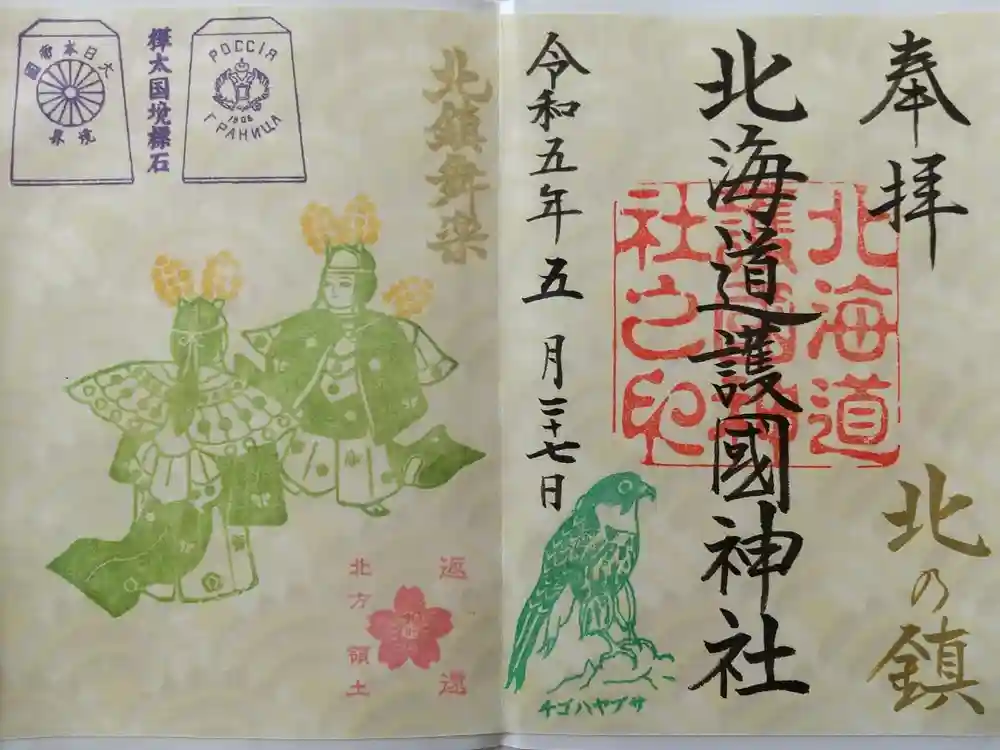 奉拝
北海道護國神社
北海道
社之印
北の鎮
令和五年五月二十七日
チゴハヤブサ
北鎮舞楽
РОССІЯ
1906
ГРАНИЦА
樺太国境標石
大日本帝國
境界
返還
北方領土